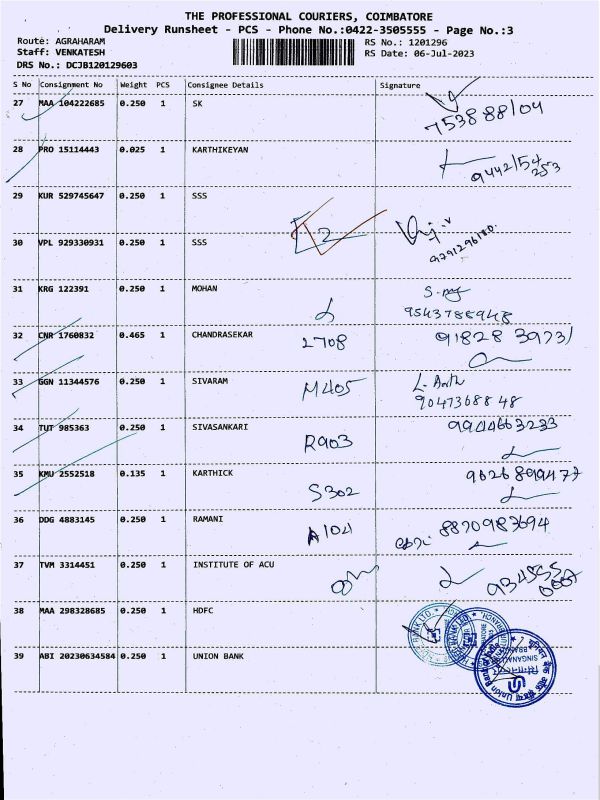 THE PROFESSIONAL COURIERS, COIMBATORE
Delivery Runsheet - PCS - Phone No.:0422-3505555 - Page No.:3
Route: AGRAHARAM
Staff: VENKATESH
DRS No.: DCJB120129603
RS No.: 1201296
RS Date: 06-Jul-2023
S No Consignment No Weight PCS Consignee Details Signature
27 MAA 104222685 0.250 1 SK
28 PRO 15114443 0.025 1 KARTHIKEYAN
29 KUR 529745647 0.250 1 SSS
30 VPL 929330931 0.250 1 SSS
9791296180
31 KRG 122391 0.250 1 MOHAN
9543788948
32 CNR 1760832 0.465 1 CHANDRASEKAR 2708
33 GGN 11344576 0.250 1 SIVARAM M405
9047368848
34 TUT 985363 0.250 1 SIVASANKARI R903 9944663233
35 KMU 2552518 0.135 1 KARTHICK S302 9626899477
36 DDG 4883145 0.250 1 RAMANI A104 8870983694
37 TVM 3314451 0.250 1 INSTITUTE OF ACU
38 MAA 298328685 0.250 1 HDFC
39 ABI 20230634584 0.250 1 UNION BANK